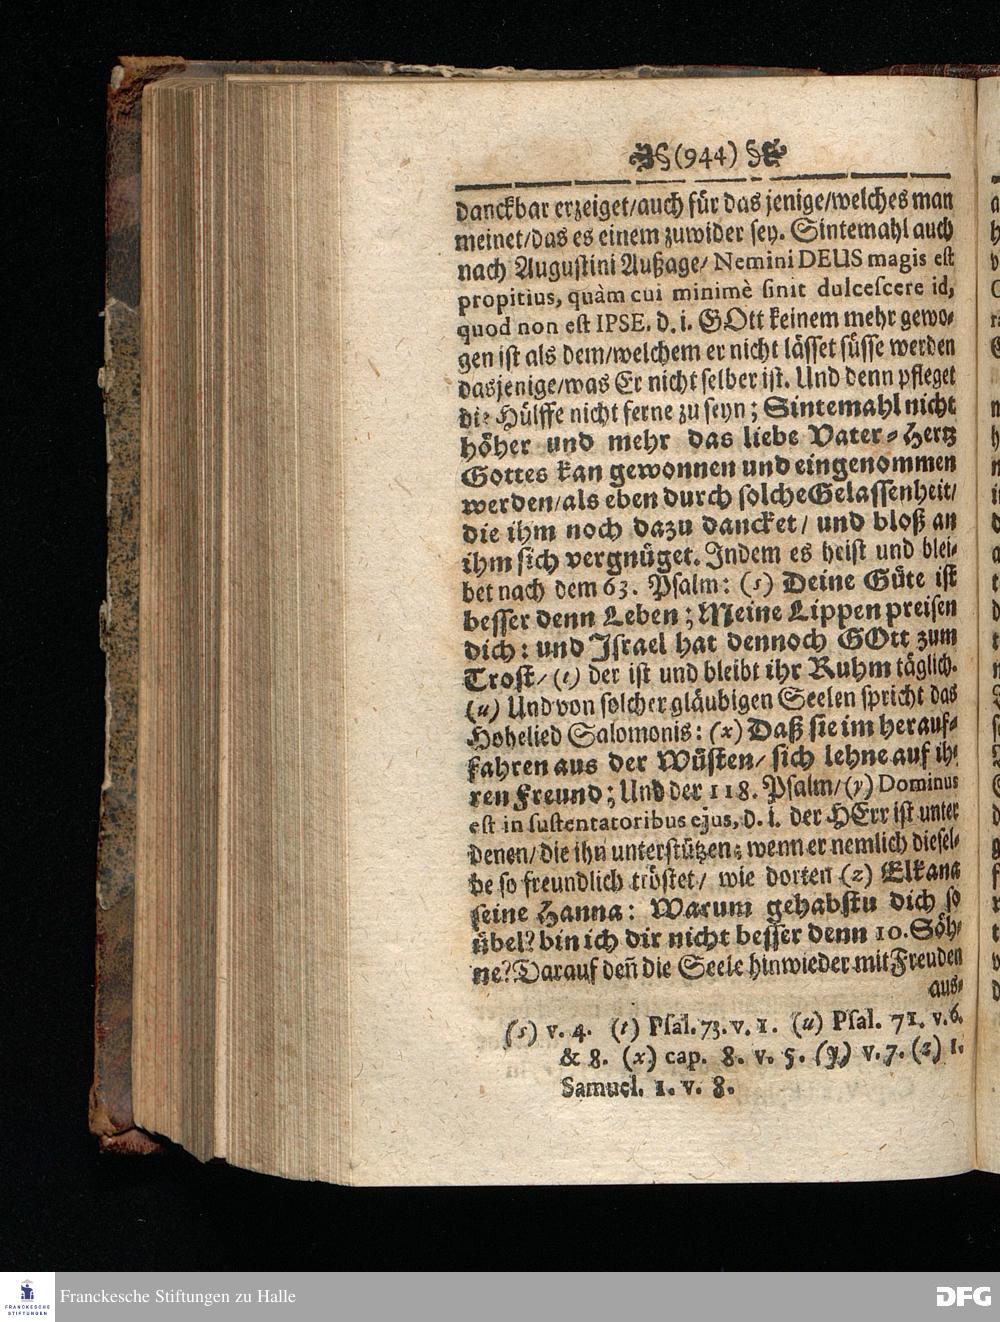 §(944)§
danckbar erzeiget/auch für das jenige/welches man
meinet/das es einem zuwider sey. Sintemahl auch
nach Augustini Außage/ Nemini DEUS magis est
propitius, quàm cui minimè sinit dulcescere id,
quod non est IPSE. d. i. GOtt keinem mehr gewo-
gen ist als dem/welchem er nicht lässet süsse werden
dasjenige/was Er nicht selber ist. Und denn pfleget
die Hülffe nicht ferne zu seyn; Sintemahl nicht
höher und mehr das liebe Vater-Hertz
Gottes kan gewonnen und eingenommen
werden/als eben durch solche Gelassenheit/
die ihm noch dazu dancket/ und bloß an
ihm sich vergnüget. Indem es heist und blei-
bet nach dem 63. Psalm: (s) Deine Güte ist
besser denn Leben; Meine Lippen preisen
dich: und Israel hat dennoch GOtt zum
Trost/ (t) der ist und bleibt ihr Ruhm täglich.
(u) Und von solcher gläubigen Seelen spricht das
Hohelied Salomonis: (x) Daß sie im herauf-
fahren aus der Wüsten/ sich lehne auf ih-
ren Freund; Und der 118. Psalm/ (y) Dominus
est in sustentatoribus ejus, d. i. der HErr ist unter
denen/ die ihn unterstützen; wenn er nemlich diesel-
be so freundlich tröstet/ wie dorten (z) Elkana
seine Hanna: Warum gehabstu dich so
übel? bin ich dir nicht besser denn 10. Söh-
ne? Darauf deñ die Seele hinwieder mit Freuden
aus-
(s) v. 4. (t) Psal. 73. v. 1. (u) Psal. 71. v. 6.
& 8. (x) cap. 8. v. 5. (y) v. 7. (z) 1.
Samuel. 1. v. 8.
FRANCKESCHE STIFTUNGEN
Franckesche Stiftungen zu Halle
DFG